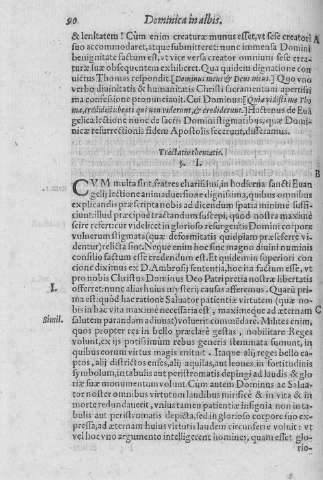 90
Dominica in albis.
& lenitatem! Cùm enim creaturæ munus esset, vt sese creatori
suo accommodaret, atque submitteret: nunc immensa Domini
benignitate factum est, vt vice versa creator omnium sese crea-
turæ suæ obsequentem exhiberet. Qua quidem dignatione con-
uictus Thomas respondit: [Dominus meus & Deus meus.] Quo voo
verbo diuinitatis & humanitatis Christi sacramentum apertissi
ma confessione pronunciauit. Cui Dominus: [Quia vidisti me Tho
ma, credidisti: beati qui non viderunt, & crediderunt.] Hactenus de Euā
gelica lectione nunc de sacris Domini stigmatibus, quæ Domi-
nicæ resurrectionis fidem Apostolis fecerunt, disseramus.
Tractatio thematis.]
§. I.
CVM multa sint, fratres charissimi, in hodierna sancti Euan
gelij lectione animaduersione dignissima, quibus omnibus
explicandis præscripta nobis ad dicendum spatia minimè suffi-
ciunt: illud præcipuè tractandum suscepi, quod nostra maximè
scire refert: cur videlicet in glorioso resurgentis Domini corpore
vulnerum stigmata (quæ deformitatis quidpiam præseferre vi-
dentur) relicta sint. Neque enim hoc sine magno diuini numinis
consilio factum esse credendum est. Et quidem in superiori con
cione diximus ex D. Ambrosij sententia, hoc ita factum esse, vt
pro nobis Christus Dominus Deo Patri pretia nostræ libertatis
offerret: nunc alias huius mysterij causas afferemus. Quarū pri-
I.
ma est: quòd hac ratione Saluator patientiæ virtutem (quæ no-
bis in hac vita maximè necessaria est, maximeque ad æternam
Simil.
salutem parandam adiuuat) voluerit commēdare. Milites enim,
quos propter res in bello præclarè gestas, nobilitare Reges
volunt, ex ijs potissimùm rebus generis stemmata sumunt, in
quibus eorum virtus magis enituit. Itaque alij reges bello ca-
ptos, alij districtos enses, alij aquilas, aut leones in fortitudinis
symbolum, in tabulis aut peristromatis depingi ad laudis & glo
riæ suæ monumentum volunt. Cùm autem Dominus ac Salua-
tor noster omnibus virtutum laudibus mirificè & in vita & in
morte redundauerit, vnius tamen patientiæ insignia non in ta-
bulis aut peristromatis depicta, sed in glorioso corpore suo ex-
pressa, ad æternam huius virtutis laudem circunferre voluit: vt
vel hoc vno argumento intelligerent homines, quàm esset glo-
rio-
A
B
C